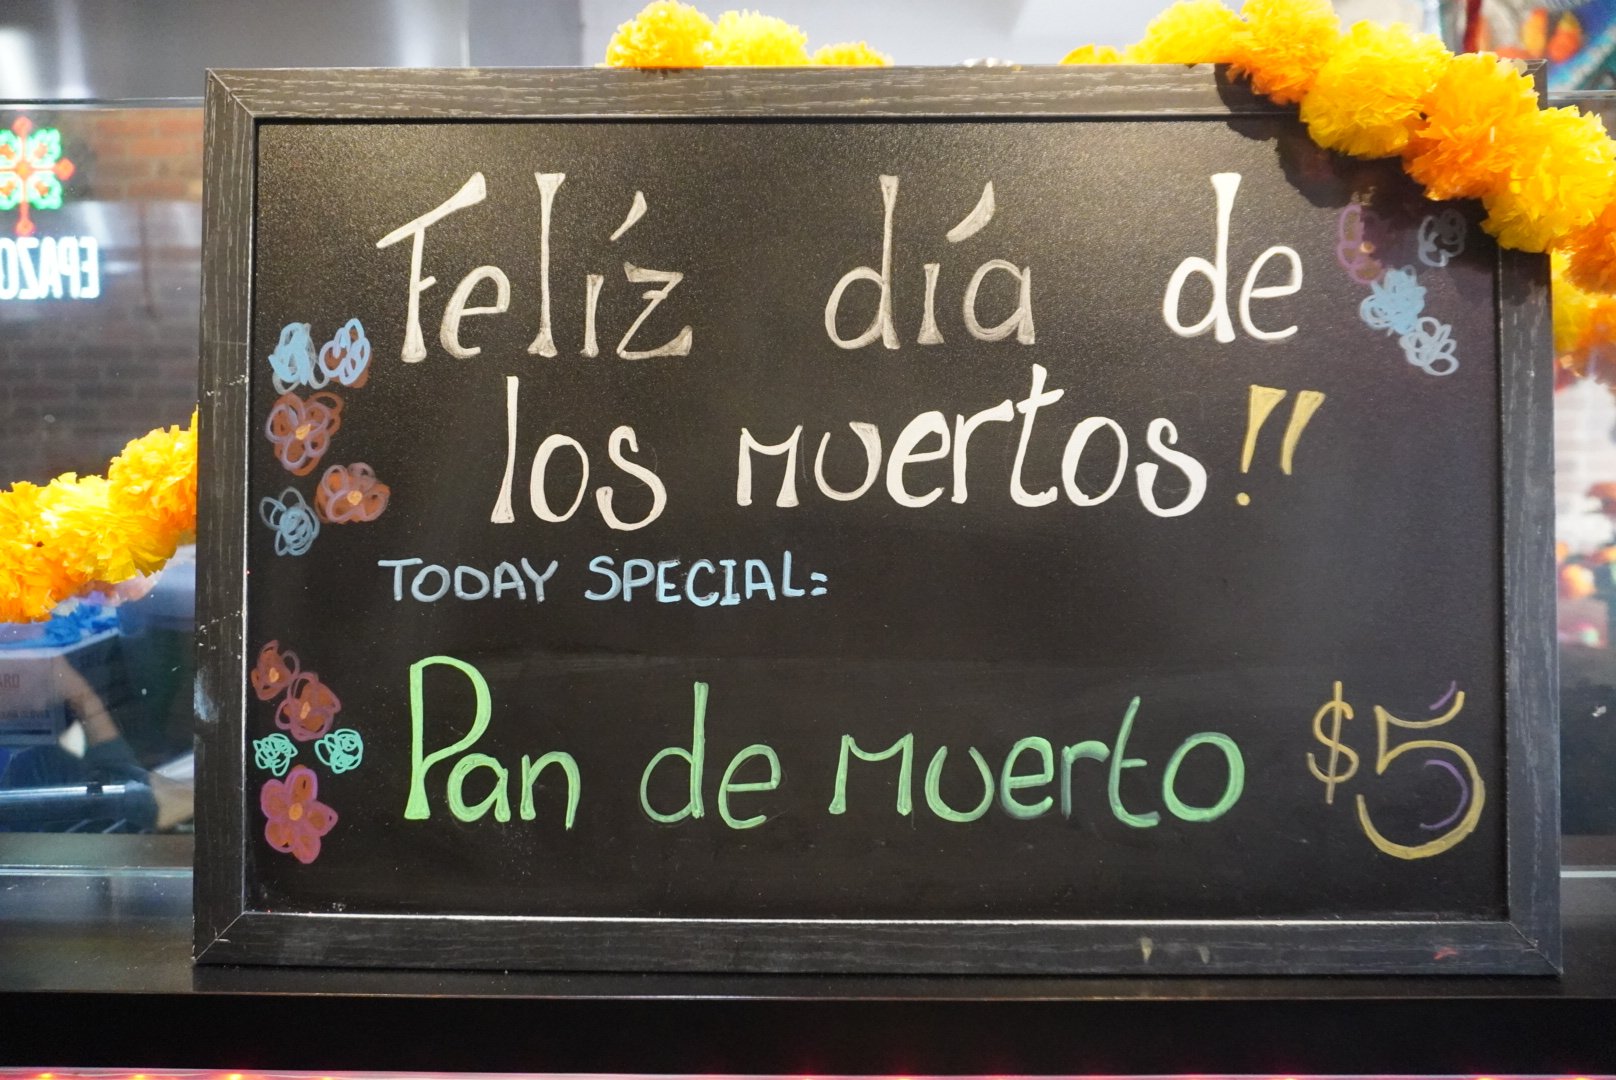 Felíz día de
los muertos!!
TODAY SPECIAL:
Pan de muerto $5
EPAZO